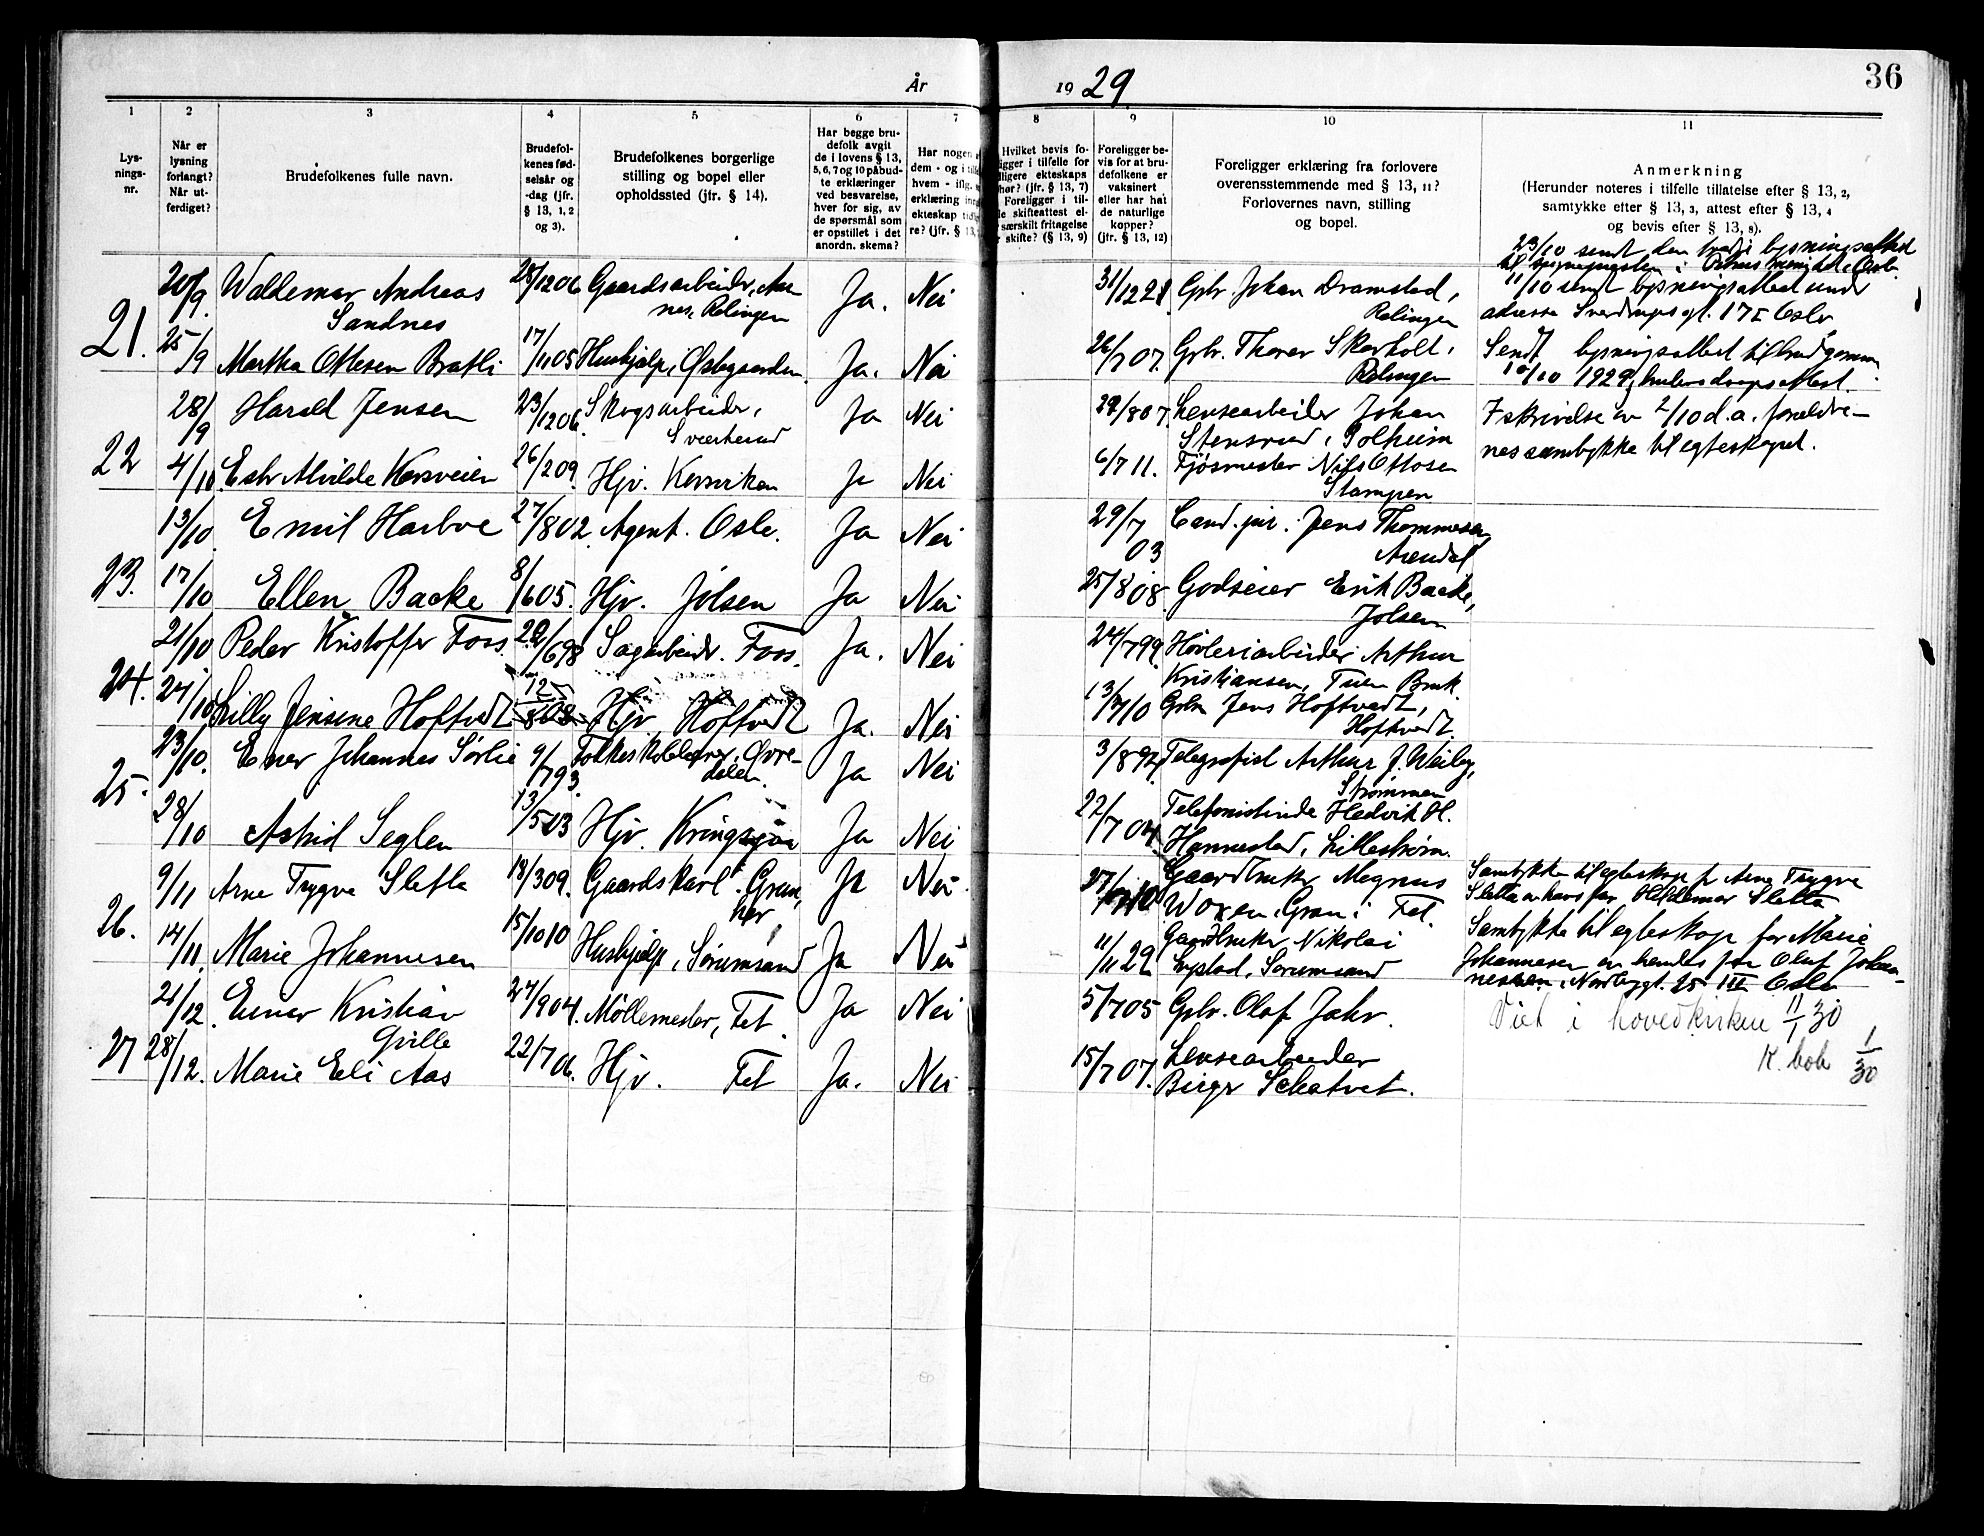 36
År 1929.
1 2 3 4 5 6 7 8 9 10 11
Lys-
nings-
nr.
Når er
lysning
forlangt?
Når ut-
ferdiget?
Brudefolkenes fulle navn.
Brudefol-
kenes fød-
selsår og
-dag (jfr.
§ 13, 1, 2
og 3).
Brudefolkenes borgerlige
stilling og bopel eller
opholdssted (jfr. § 14).
Har begge bru-
defolk avgit
de i lovens § 13,
5, 6, 7 og 10 påbud-
te erklæringer
ved besvarelse,
hver for sig, av
de spørsmål som
er opstillet i det
anordn. skema?
Har nogen
dem - og i
hvem - iflg.
erklæring
ekteskap
re? (jfr. § 13,
Hvilket bevis fo-
ligger i tilfelle for
ligere ekteskaps
hør? (jfr. § 13, 7)
Foreligger i til-
le skifteattest el-
særskilt fritagelse
skifte? (§ 13, 9)
Foreligger be-
vis for at bru-
defolkene er
vaksinert
eller har hat
de naturlige
kopper?
(jfr. § 13, 12)
Foreligger erklæring fra forlovere
overensstemmende med § 13, 11?
Forlovernes navn, stilling
og bopel.
Anmerkning
(Herunder noteres i tilfelle tillatelse efter § 13, 2,
samtykke efter § 13, 3, attest efter § 13, 4
og bevis efter § 13, 8).
21. 20/9 Waldemar Andreas
Sandnes 28/12 06 Gaardsarbeider, Aa-
nes, Rælingen Ja. Nei 31/12 21 Gbr. Johan Dramstad,
Rælingen
23/10 sendt
11/10 sendt lysningsattest under
adresse Sverdrups gt. 17 I Oslo
25/9 Martha Ottesen Bratli 17/11 05 Hushjelp, Østbygaarden. Ja. Nei 26/7 07. Gbr. Thorer Skarholt,
Rælingen
Sendt lysningsattest til brudgommen
10/10 1929,
22 28/9 Harald Jensen 23/12 06. Skogsarbeider,
Sværterud Ja Nei 22/8 07. Lensearbeider Johan
Stensrud, Solheim
I skrivelse av 2/10 d.a. foreldre-
nes samtykke til egteskapet.
4/10. Alvilde Korsveien 26/2 09. Hjv. Korsviken Ja Nei 6/7 11. Fjøsmester Nils Ottosen
Stampen
23. 13/10 Emil Harboe 27/8 02 Agent. Oslo. Ja Nei 29/7
03 Cand. jur. Jens Thommesen,
Arendal
17/10 Ellen Backe 8/6 05. Hjv. Jølsen Ja Nei 25/8 08 Godseier Erik Backe,
Jølsen
24. 21/10 Peder Kristoffer Foss 22/6 98 Sagarbeider. Foss. Ja. Nei 24/7 99. Høvleriarbeider Arthur
Kristiansen, Tuen Bruk.
24/10 Lilly Jensine Hoftvedt 12/8 08 Hjv Hoftvedt Ja. Nei 13/7 10 Gbr. Jens Hoftvedt,
Hoftvedt.
25. 23/10. Einar Johannes Sørlie 9/7 93. Folkeskolelærer, Øvre-
dalen. Ja Nei 3/8 92 Telegrafist Arthur J. Weiby,
Strømmen
28/10 Astrid Seglen 13/5 03 Hjv. Kringsjaa Ja Nei 22/7 04. Telefonistinde Hedvik H.
Hannestad, Lillestrøm.
26. 9/11 Arne Trygve Sletta 18/3 09. Gaardskarl. Gran,
her Ja Nei 27/ 10 Gaardbruker Magnus
Woxen, Gran i Fet.
Samtykke til egteskap fr Arne Trygve
Sletta av hans far Hildemar Sletta
14/11. Marie Johannesen 15/10 10 Hushjelp, Sørumsand Ja Nei 11/11 29 Gaardbruker Nikolai
Lystad, Sørumsand
Samtykke til egteskap for Marie
Johannesen av hendes far Oluf Johan-
nessen, Nordbygt. 25 III Oslo
27 21/12. Einar Kristian
Grille 27/9 04. Møllemester, Fet. Ja Nei 5/7 05 Gbr. Olaf Jahr.
Viet i hovedkirken 11/1 30
K. bok 1/30
28/12. Marie Eli Aas 22/7 06. Hjv. Fet Ja. Nei 15/7 07. Lensearbeider
Birger Schatvet.